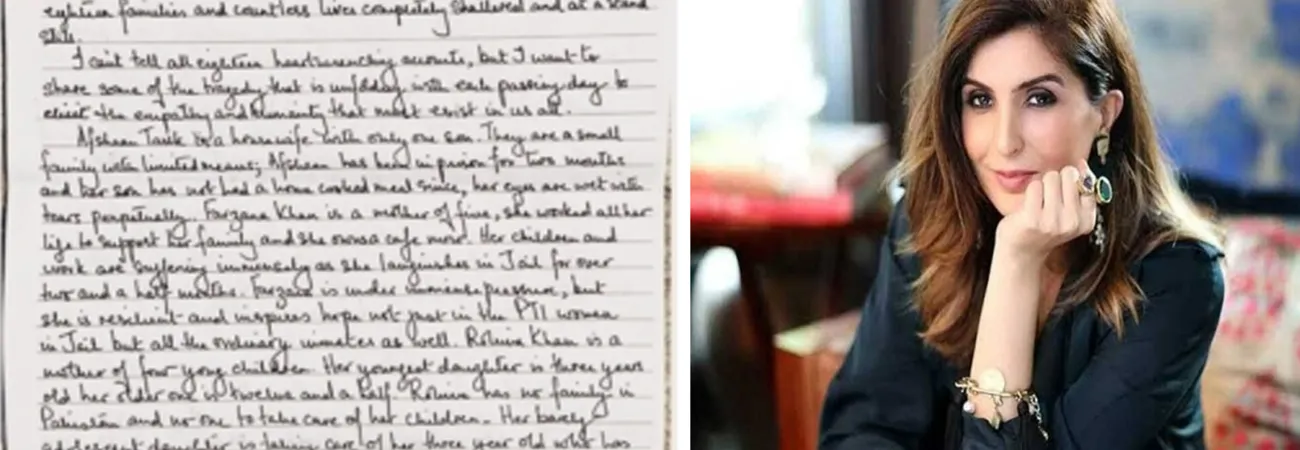 eighteen families and countless lives completely shattered and at a stand
still.
I can't tell all eighteen heartwrenching accounts, but I want to
share some of the tragedy that is unfolding with each passing day to
elicit the empathy and humanity that must exist in us all.
Afsheen Tarik is a housewife with only one son. They are a small
family with limited means; Afsheen has been in prison for two months
and her son has not had a home cooked meal since, her eyes are wet with
tears perpetually. Farzana Khan is a mother of five, she worked all her
life to support her family and she owns a cafe now. Her children and
work are suffering immensely as she languishes in Jail for over
two and a half months. Farzana is under immense pressure, but
she is resilient and inspires hope not just in the PTI women
in Jail but all the ordinary inmates as well. Rohina Khan is a
mother of four young children. Her youngest daughter is three years
old her older one is twelve and a half. Rohina has no family in
Pakistan and no one to take care of her children. Her barely
adolescent daughter is taking care of her three year old who has